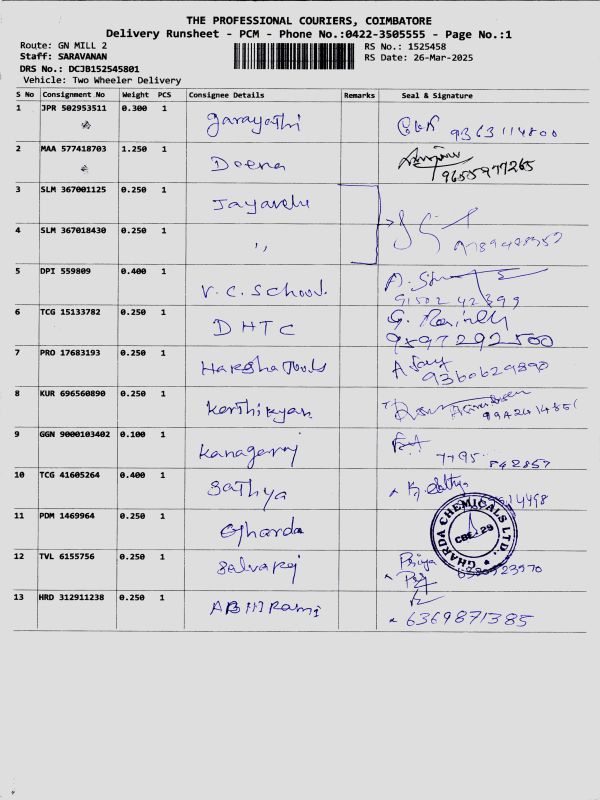 THE PROFESSIONAL COURIERS, COIMBATORE
Delivery Runsheet - PCM - Phone No.:0422-3505555 - Page No.:1
Route: GN MILL 2
RS No.: 1525458
Staff: SARAVANAN
RS Date: 26-Mar-2025
DRS No.: DCJB152545801
Vehicle: Two Wheeler Delivery
S No Consignment No Weight PCS Consignee Details Remarks Seal & Signature
1 JPR 502953511 0.300 1 9363114800
2 MAA 577418703 1.250 1 Deena 9655977265
3 SLM 367001125 0.250 1 Jayavelu
4 SLM 367018430 0.250 1 ,,
5 DPI 559809 0.400 1 V.C. School
6 TCG 15133782 0.250 1 DHTC
7 PRO 17683193 0.250 1 Harsha Tools
8 KUR 696560890 0.250 1 Karthikyan
9 GGN 9000103402 0.100 1 Kanagaraj 7795 842857
10 TCG 41605264 0.400 1 Sathya
11 PDM 1469964 0.250 1 Gharda GHARDA CHEMICALS LTD. CBE-29
12 TVL 6155756 0.250 1 Selvaraj Priya
13 HRD 312911238 0.250 1 ABIRAMI 6369871385